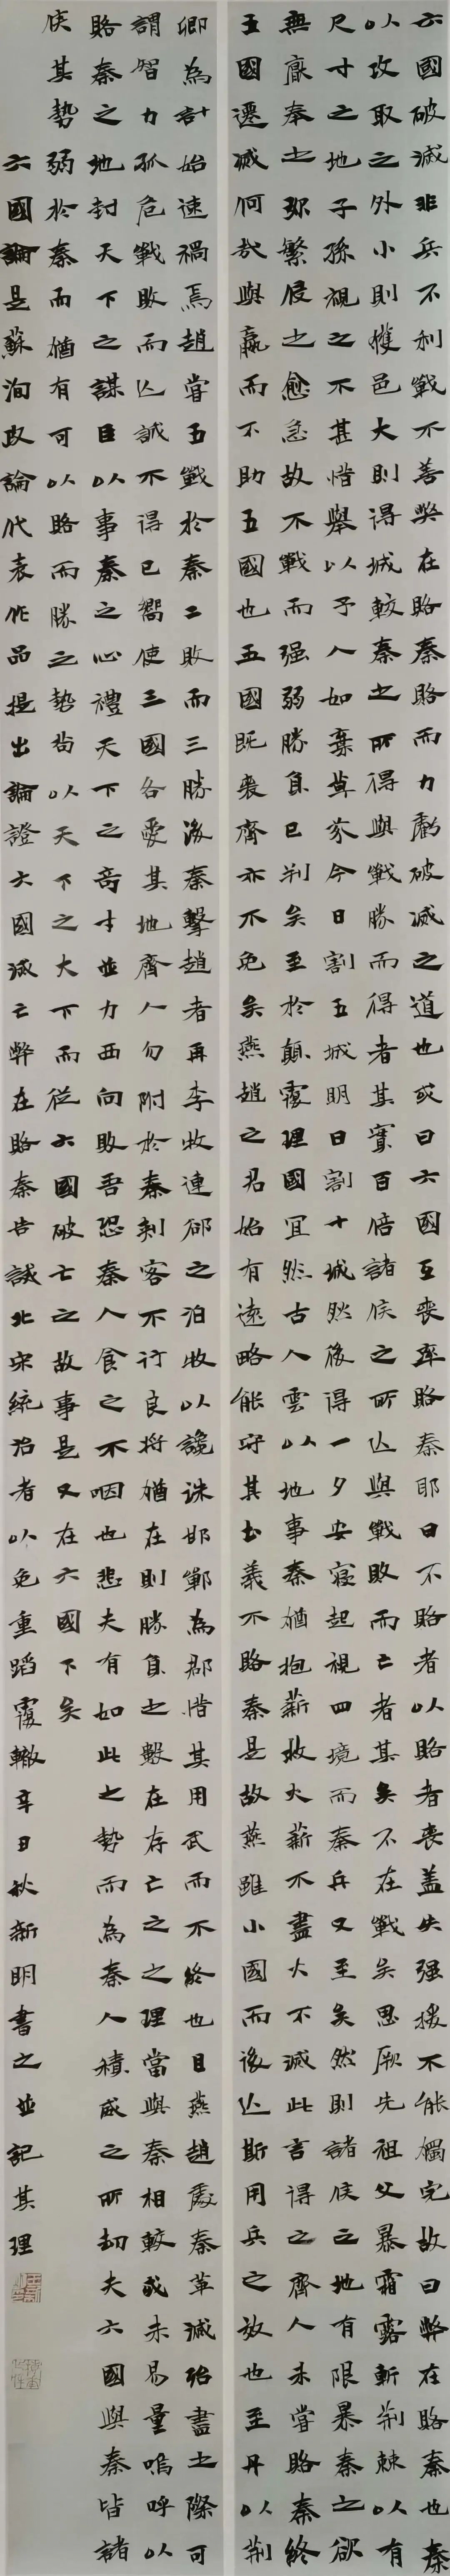 六國破滅非兵不利戰不善弊在賂秦賂而力虧破滅之道也或曰六國互喪率賂秦耶曰不賂者以賂者喪盖失强援不能獨完故曰弊在賂秦也秦
以攻取之外小則獲邑大則得城較秦之所得與戰勝而得者其實百倍諸侯之所亡與戰敗而亡者其矣不在戰矣思厥先祖父暴霜露斬荆棘以有
尺寸之地子孫視之不甚惜舉以予人如棄草芥今日割五城明日割十城然後得一夕安寢起視四境而秦兵又至矣然則諸侯之地有限暴秦之欲
無厭奉之弥繁侵之愈急故不戰而强弱勝負已判矣至於顛覆理國宜然古人雲以地事秦猶抱薪救火薪不盡火不滅此言得之齊人未嘗賂秦終
五國遷滅何哉與嬴而不助五國也五國既喪齊亦不免矣燕趙之君始有遠略能守其土義不賂秦是故燕雖小國而後亡斯用兵之效也至丹以荆
卿為計始速禍焉趙嘗五戰於秦二敗而三勝後秦擊趙者再李牧連郤之洎牧以讒誅邯鄲為郡惜其用武而不終也且燕趙處秦革滅殆盡之際可
謂智力孤危戰敗而亡誠不得已嚮使三國各愛其地齊人勿附於秦刺客不行良將猶在則勝負之數在存亡之之理當與秦相較或未易量嗚呼以
賂秦之地封天下之謀臣以事秦之心禮天下之奇才並力西向敗吾恐秦人食之不咽也悲夫有如此之勢而為秦人積威之所劫夫六國與秦皆諸
侯其勢弱於秦而猶有可以賂而勝之勢尚以天下之大下而從六國破亡之故事是又在六國下矣
六國論是蘇洵政論代表作品提出論證六國滅亡弊在賂秦告誡北宋統治者以免重蹈覆轍辛日秋新明書之並記其理